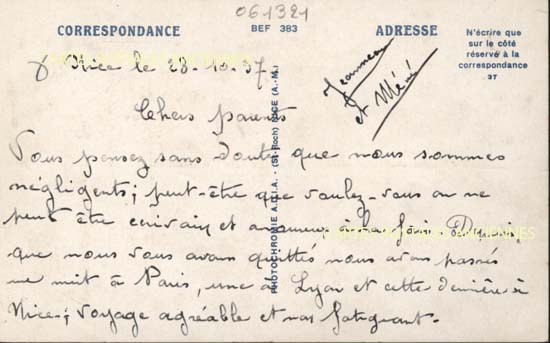 061321
CORRESPONDANCE
BEF 383
ADRESSE
N'écrire que
sur le côté
réservé à la
correspondance
37
Nice le 28-10-37
Jeanneau
et Mémé
Chers parents
Vous pensez sans doute que nous sommes
négligents; peut-être que voulez-vous on ne
peut être écrivain et amoureux à la fois Depuis
que nous vous avons quittés nous avons passés
une nuit à Paris, une à Lyon et cette dernière à
Nice; voyage agréable et pas fatiguant.
PHOTOCHROMIE A.D.I.A. - (St-Roch) NICE (A.-M.)